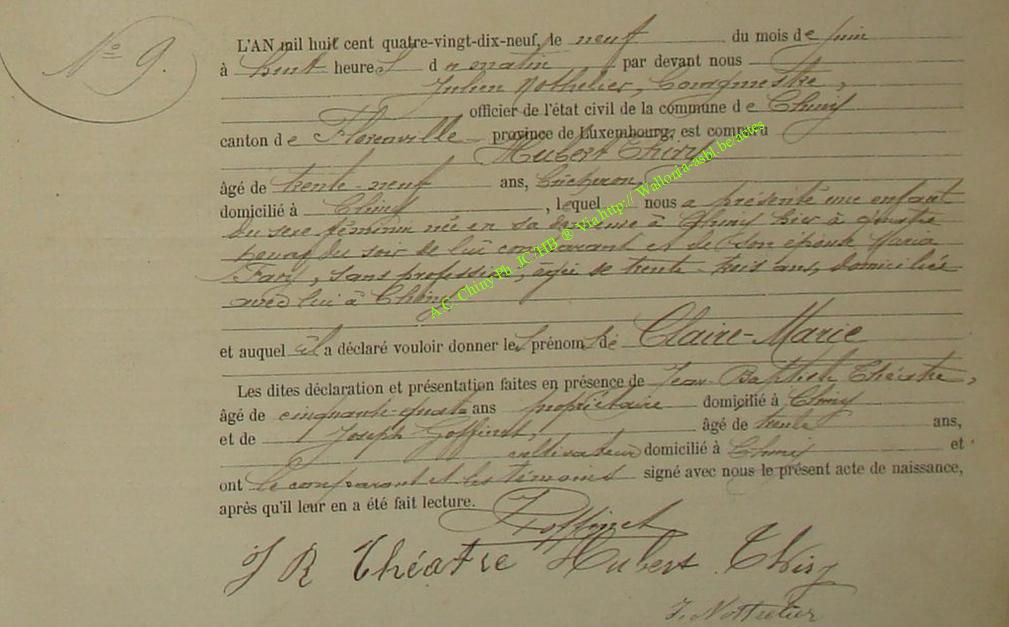 N° 9.
L'AN mil huit cent quatre-vingt-dix-neuf, le neuf du mois de juin
à huit heures du matin par devant nous
Julien Nothelier, bourgmestre,
officier de l'état civil de la commune de Chiny
canton de Florenville province de Luxembourg, est comparu
Hubert Thiry
âgé de trente-neuf ans, bûcheron,
domicilié à Chiny, lequel nous a présenté une enfant
du sexe féminin née en sa demeure à Chiny hier à quatre
heures du soir de lui comparant et de son épouse Maria
sans profession, âgée de trente-trois ans, domiciliée
avec lui à Chiny
et auquel il a déclaré vouloir donner les prénoms de Claire-Marie
Les dites déclaration et présentation faites en présence de Jean-Baptiste Théâtre,
âgé de cinquante-quatre ans propriétaire domicilié à Chiny
et de Joseph Goffinet, âgé de trente ans,
cultivateur domicilié à Chiny et
ont le comparant et les témoins signé avec nous le présent acte de naissance,
après qu'il leur en a été fait lecture.
J Goffinet
J B Théâtre Hubert Thiry
J. Nothelier
A.C. Chiny Ph. JC/HB ® Via http:// Wallonia-asbl.be/actes